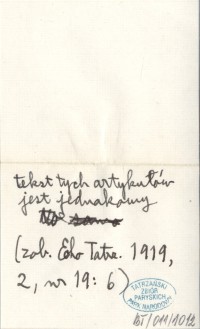 tekst tych artykułów
jest jednakowy
(zob. Echo Tatrz. 1919,
2, nr 19: 6)
TATRZAŃSKI
ZBIÓR
PARYSKICH